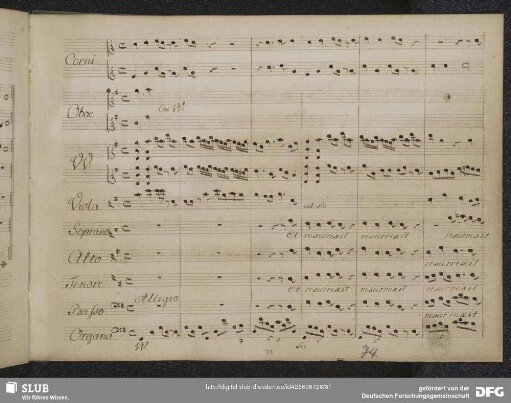 Corni
Oboe
Con VV
VV
Viola
col
Soprano
Et resurrexit resurrexit resurrexit
Alto
resurrexit
Tenore
Et resurrexit resurrexit resurrexit
Allegro
Basso
resurrexit
Organo
74
SLUB
Wir führen Wissen.
gefördert von der
Deutschen Forschungsgemeinschaft
DFG